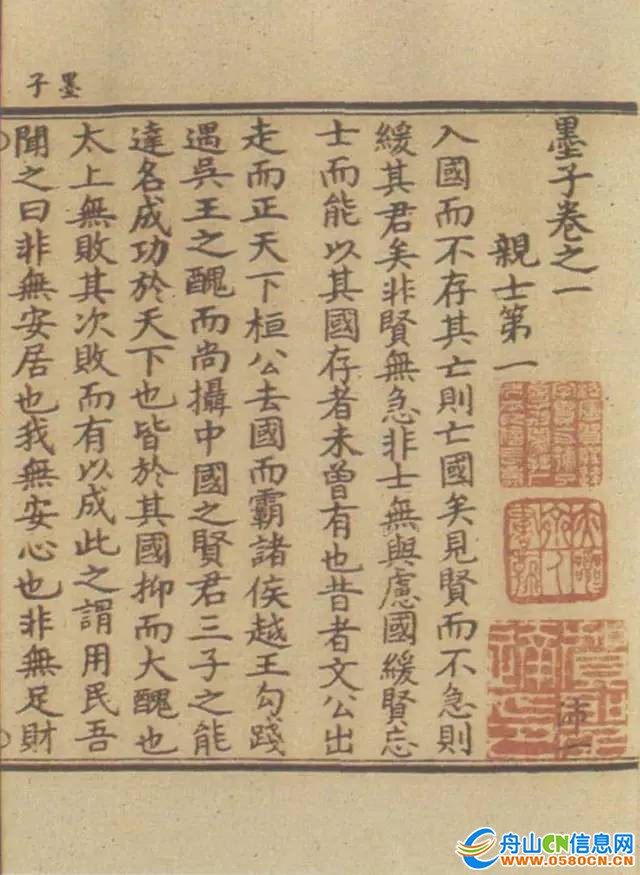 墨子
墨子卷之一
親士第一
入國而不存其亡則亡國矣見賢而不急則
緩其君矣非賢無急非士無與慮國緩賢忘
士而能以其國存者未曾有也昔者文公出
走而正天下桓公去國而霸諸侯越王勾踐
遇吳王之醜而尚攝中國之賢君三子之能
達名成功於天下也皆於其國抑而大醜也
太上無敗其次敗而有以成此之謂用民吾
聞之曰非無安居也我無安心也非無足財
舟山CN信息网
WWW.0580CN.COM